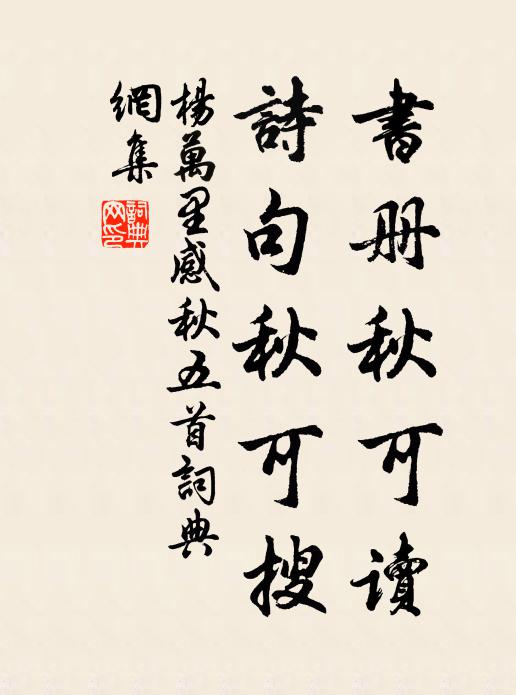 書册秋可讀
詩句秋可搜
楊萬里感秋五首詞典
網集
詞典網印